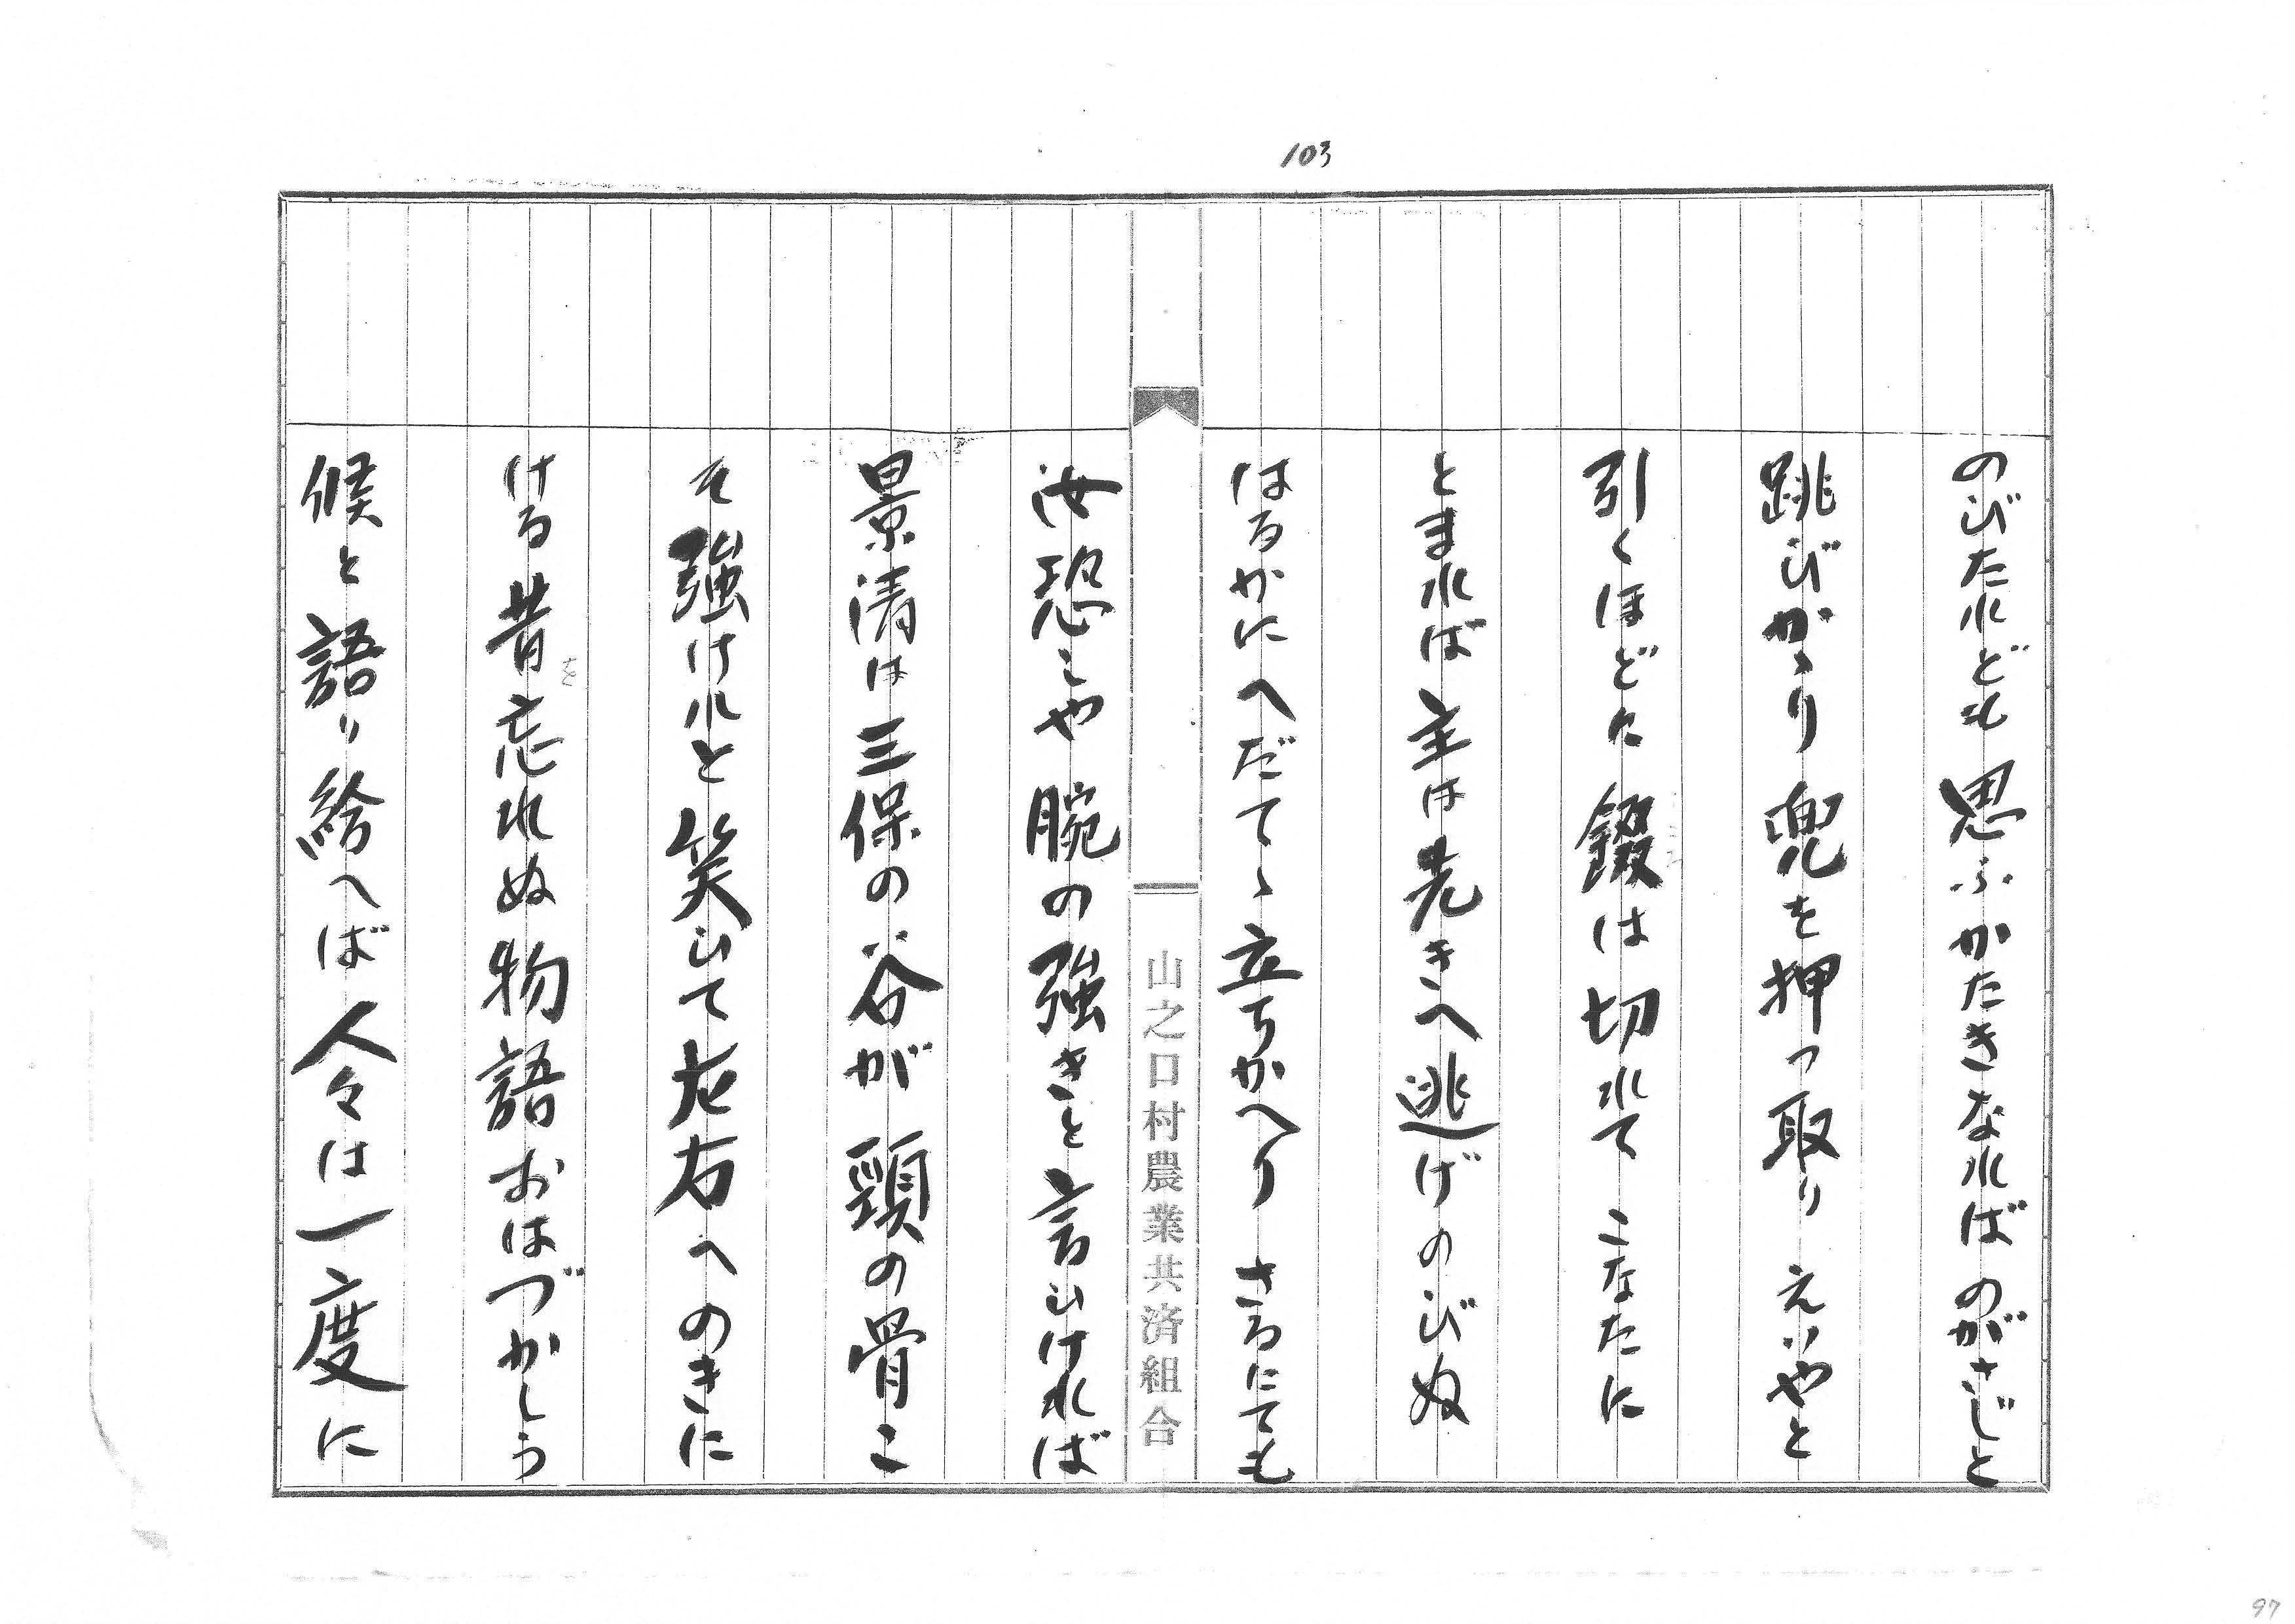 103
のびたれども 思ふかたきなれば のがさじと
跳びかゝり 兜を押っ取り えいやと
引くほどに 錣は切れて こなたに
とまれば 主は先きへ逃げのびぬ
はるかにへだてゝ立ちかへり さるにても
汝恐しや 腕の強きと言ひければ
景清は三保の谷が 頸の骨こ
そ強けれと 笑ひて左右へのきに
ける 昔を忘れぬ物語おはづかしう
候と語り給へば 人々は一度に
山之口村農業共済組合
97